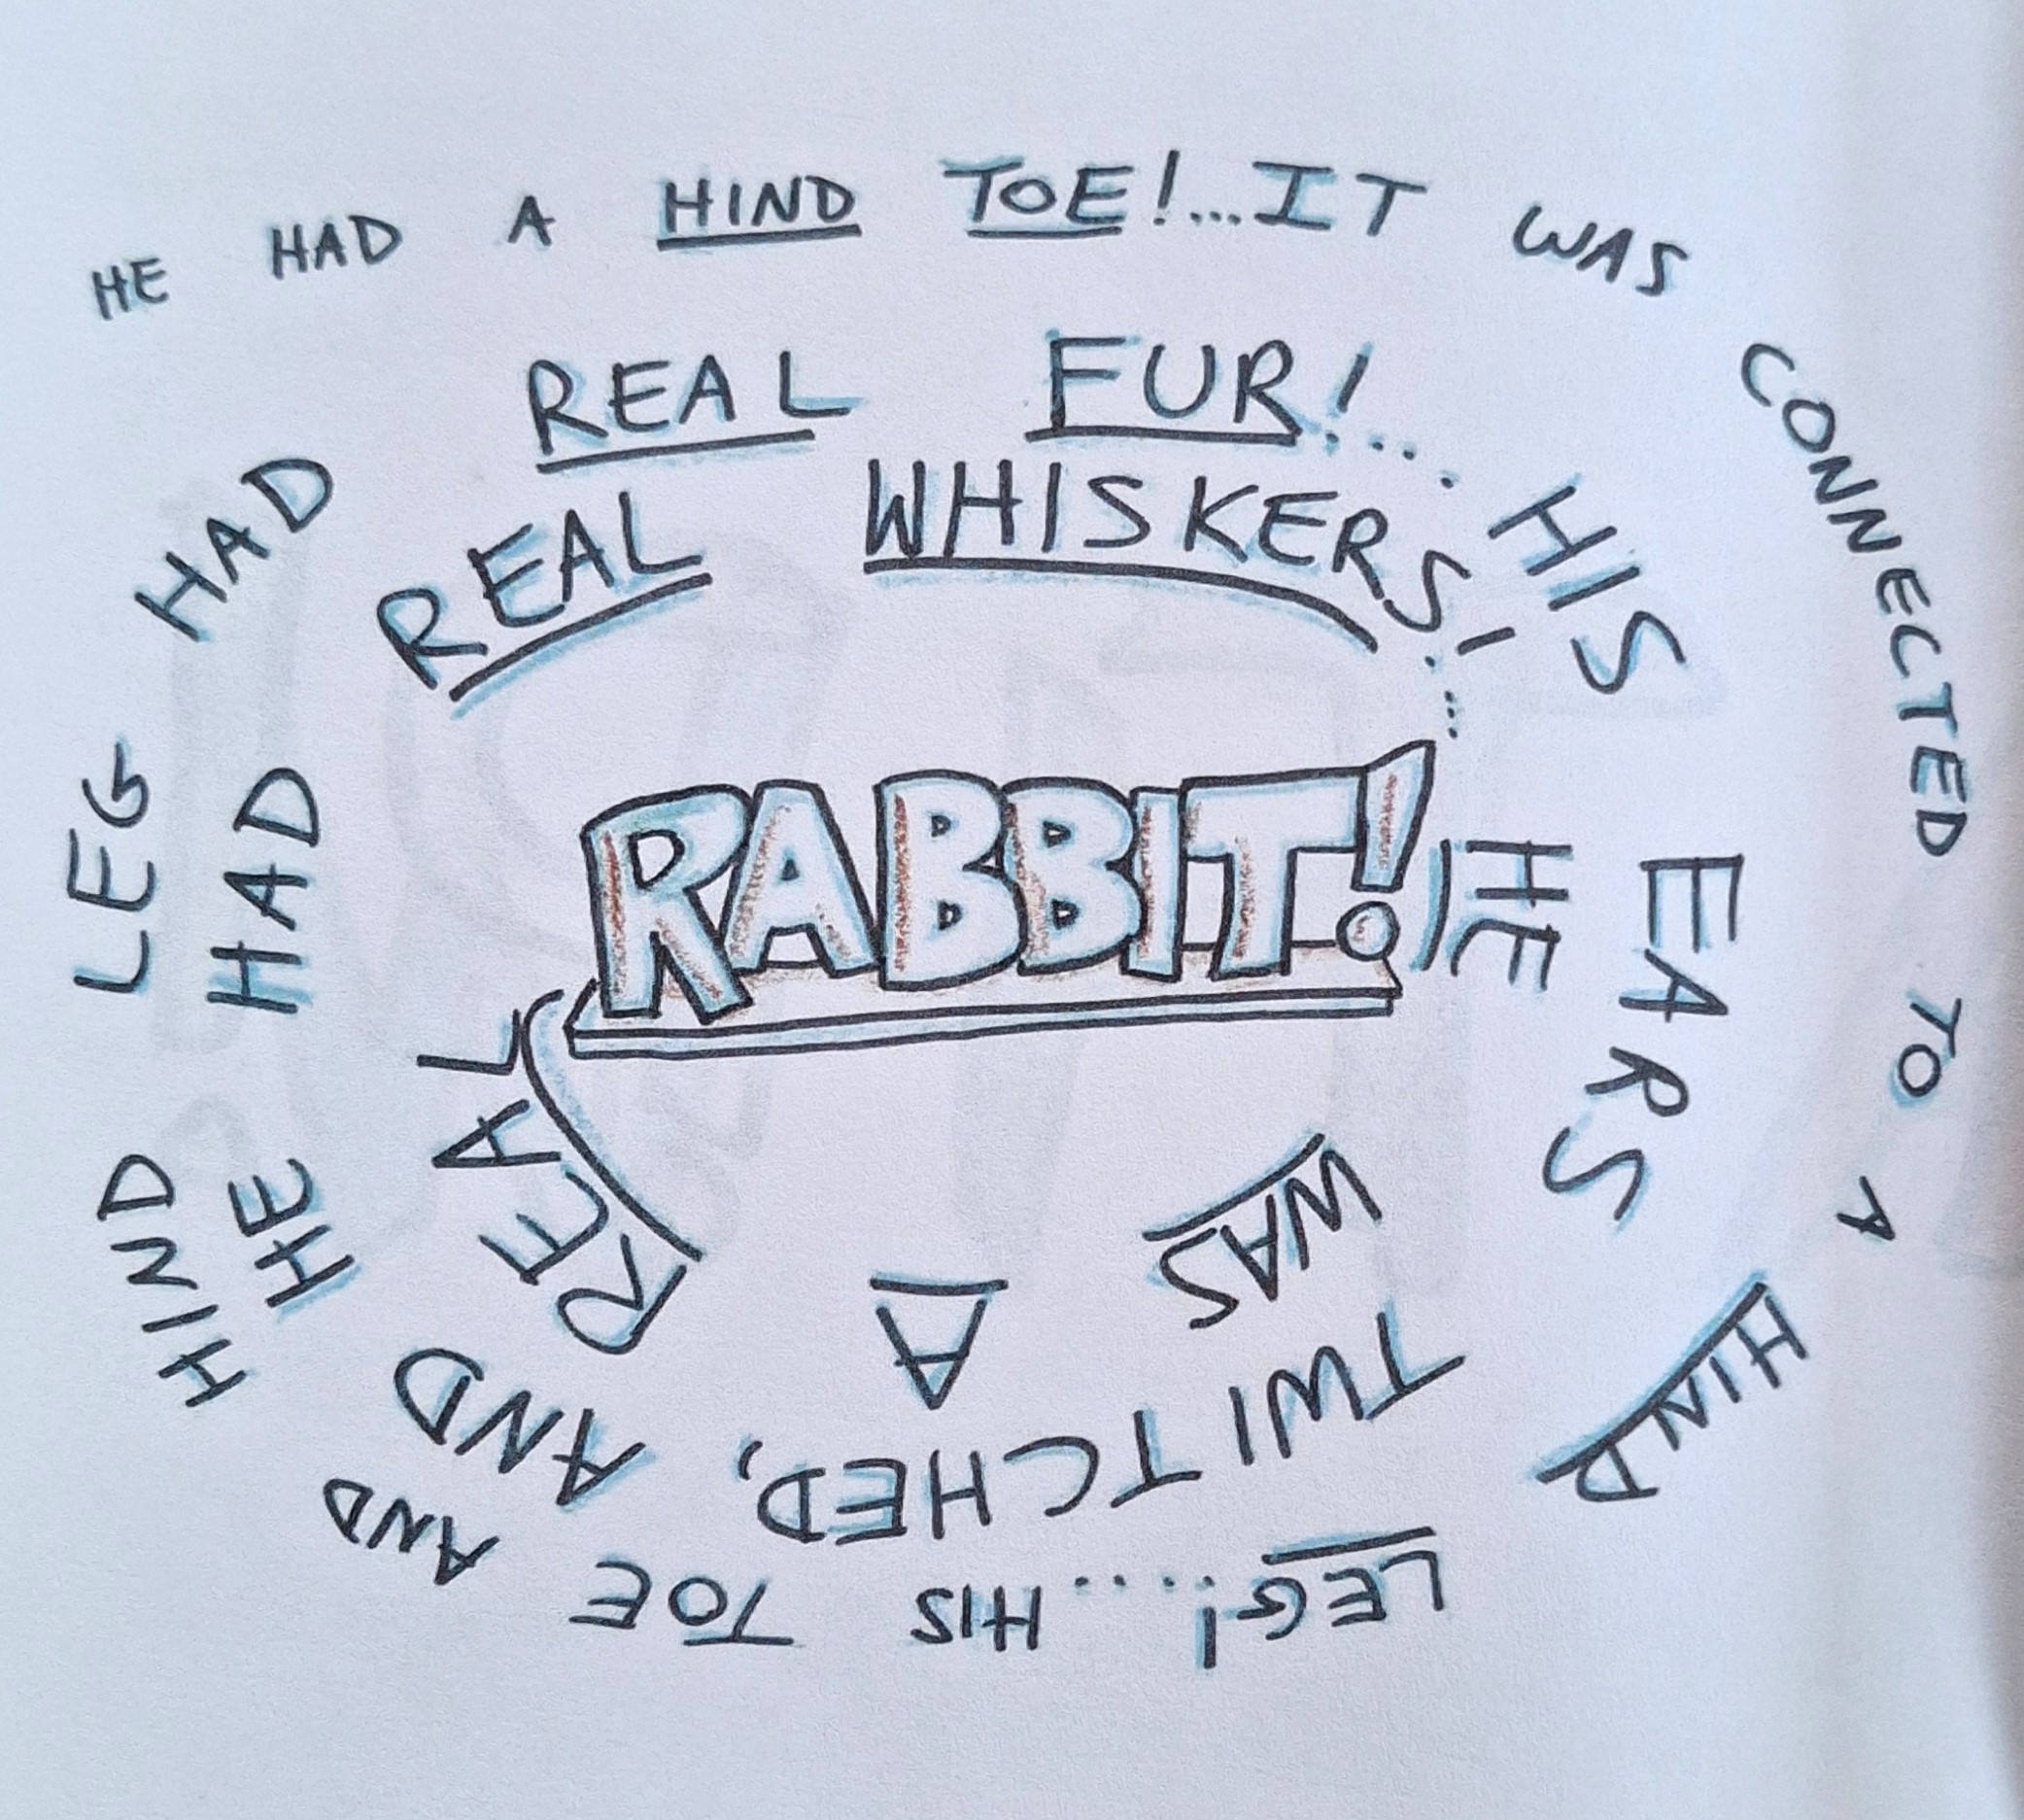 HE HAD A HIND TOE!...IT WAS
CONNECTED TO A HIND
LEG!....HIS TOE AND
HIND LEG HAD
REAL FUR!... HIS
EARS
TWITCHED, AND
HE HAD
REAL WHISKERS!...
HE WAS A REAL
RABBIT!